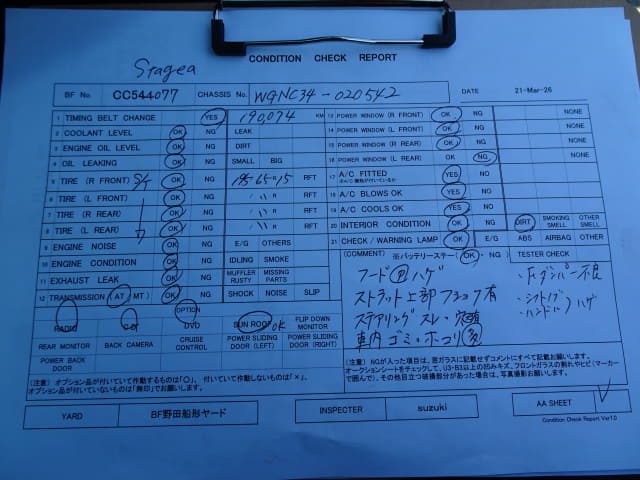 CONDITION CHECK REPORT
Stagea
BF No. CC544077 CHASSIS No. WGNC34-020542 DATE 21-Mar-26
1 TIMING BELT CHANGE YES 190,074 KM
2 COOLANT LEVEL OK NG LEAK
3 ENGINE OIL LEVEL OK NG DIRT
4 OIL LEAKING OK NG SMALL BIG
5 TIRE (R FRONT) S/T OK NG 195-65-R15 RFT
6 TIRE (L FRONT) OK NG / 〃 R RFT
7 TIRE (R REAR) OK NG / 〃 R RFT
8 TIRE (L REAR) OK NG / 〃 R RFT
9 ENGINE NOISE OK NG E/G OTHERS
10 ENGINE CONDITION OK NG IDLING SMOKE
11 EXHAUST LEAK OK NG MUFFLER RUSTY MISSING PARTS
12 TRANSMISSION (AT MT) OK NG SHOCK NOISE SLIP
OPTION
RADIO CD DVD SUN ROOF OK FLIP DOWN MONITOR
REAR MONITOR BACK CAMERA CRUISE CONTROL POWER SLIDING DOOR (LEFT) POWER SLIDING DOOR (RIGHT)
POWER BACK DOOR
(注意) オプション品が付いていて作動するものは「○」、付いていて作動しないものは「×」、
オプション品が付いていないものは「無印」でお願いします。
13 POWER WINDOW (R FRONT) OK NG NONE
14 POWER WINDOW (L FRONT) OK NG NONE
15 POWER WINDOW (R REAR) OK NG NONE
16 POWER WINDOW (L REAR) OK NG NONE
17 A/C FITTED YES NO
18 A/C BLOWS OK YES NO
19 A/C COOLS OK YES NO
20 INTERIOR CONDITION OK NG DIRT SMOKING SMELL OTHER SMELL
21 CHECK / WARNING LAMP OK NG E/G ABS AIRBAG OTHER
(COMMENT) ※バッテリーステー(OK・NG) TESTER CHECK
フード内ハゲ ・Fダンパー不良
ストラット上部
ステアリングスレ・穴 ・シフトノブ ハンドル ハゲ
車内ゴミ・ホコリ多
(注意) NGが入った項目は、窓ガラスに記載せずコメントにすべて記載お願いします。
オークションシートをチェックして、U3・B3以上の凹みキズ、フロントガラスの割れやヒビ(マーカー
で囲んで)、その他目立つ破損部分があった場合は、写真撮影お願いします。
YARD BF野田船形ヤード INSPECTER suzuki AA SHEET ✓
Condition Check Report Ver10